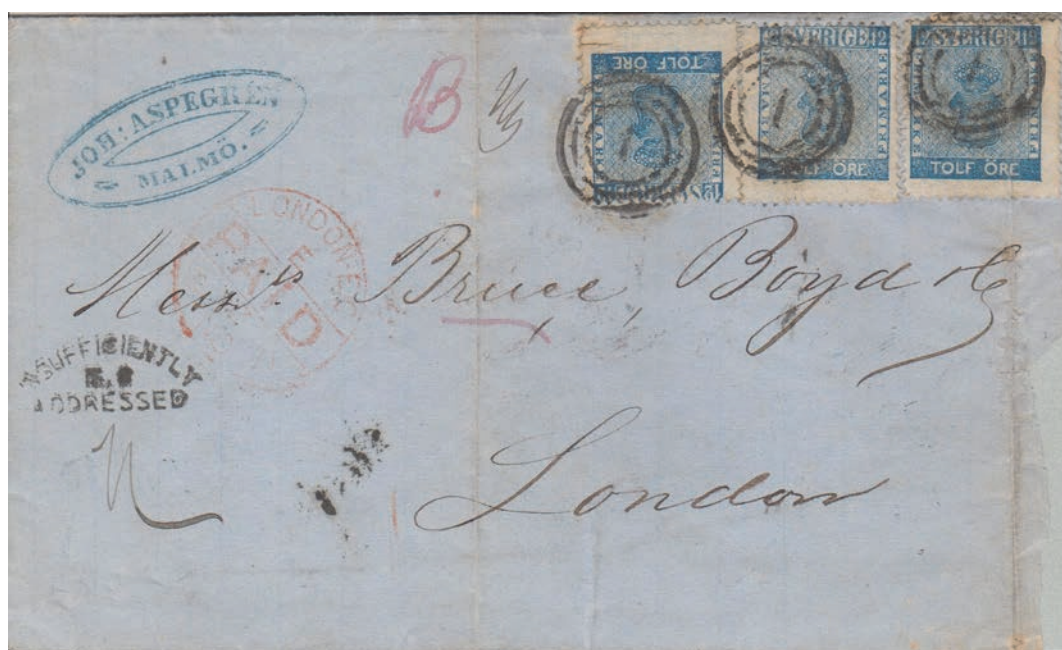 JOH: ASPEGREN
MALMÖ.
B
TOLF ÖRE
SVERIGE 12
FRIMÄRKE
TOLF ÖRE
SVERIGE
FRIMÄRKE
TOLF ÖRE
1
1
1
LONDON E.C
PAID
Messrs Bruce Boyd & Co
INSUFFICIENTLY
ADDRESSED
London